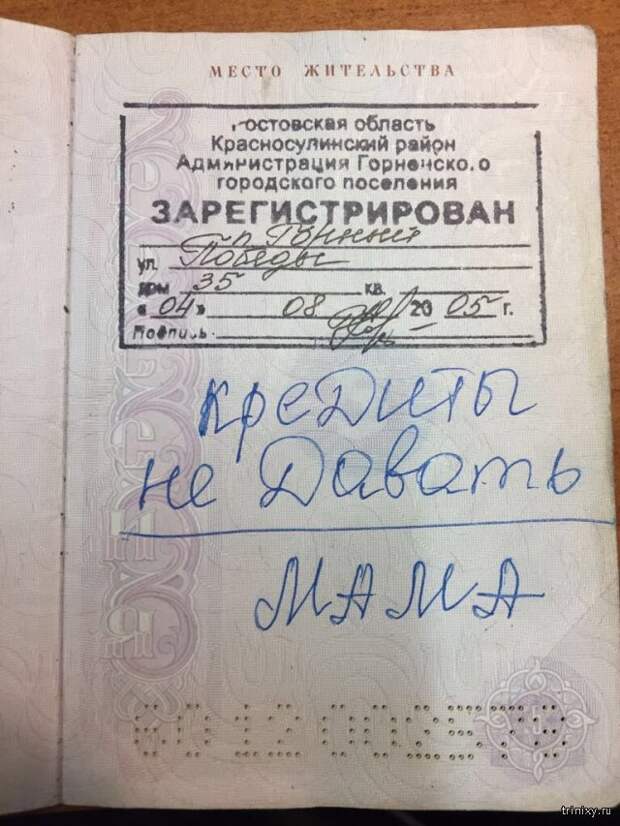 МЕСТО ЖИТЕЛЬСТВА
Ростовская область
Красносулинский район
Администрация Горненского
городского поселения
ЗАРЕГИСТРИРОВАН
п. Горный
ул. Победы
дом 35 кв.
« 04 » 08 20 05 г.
Подпись
кредиты
не давать
МАМА
trinixy.ru